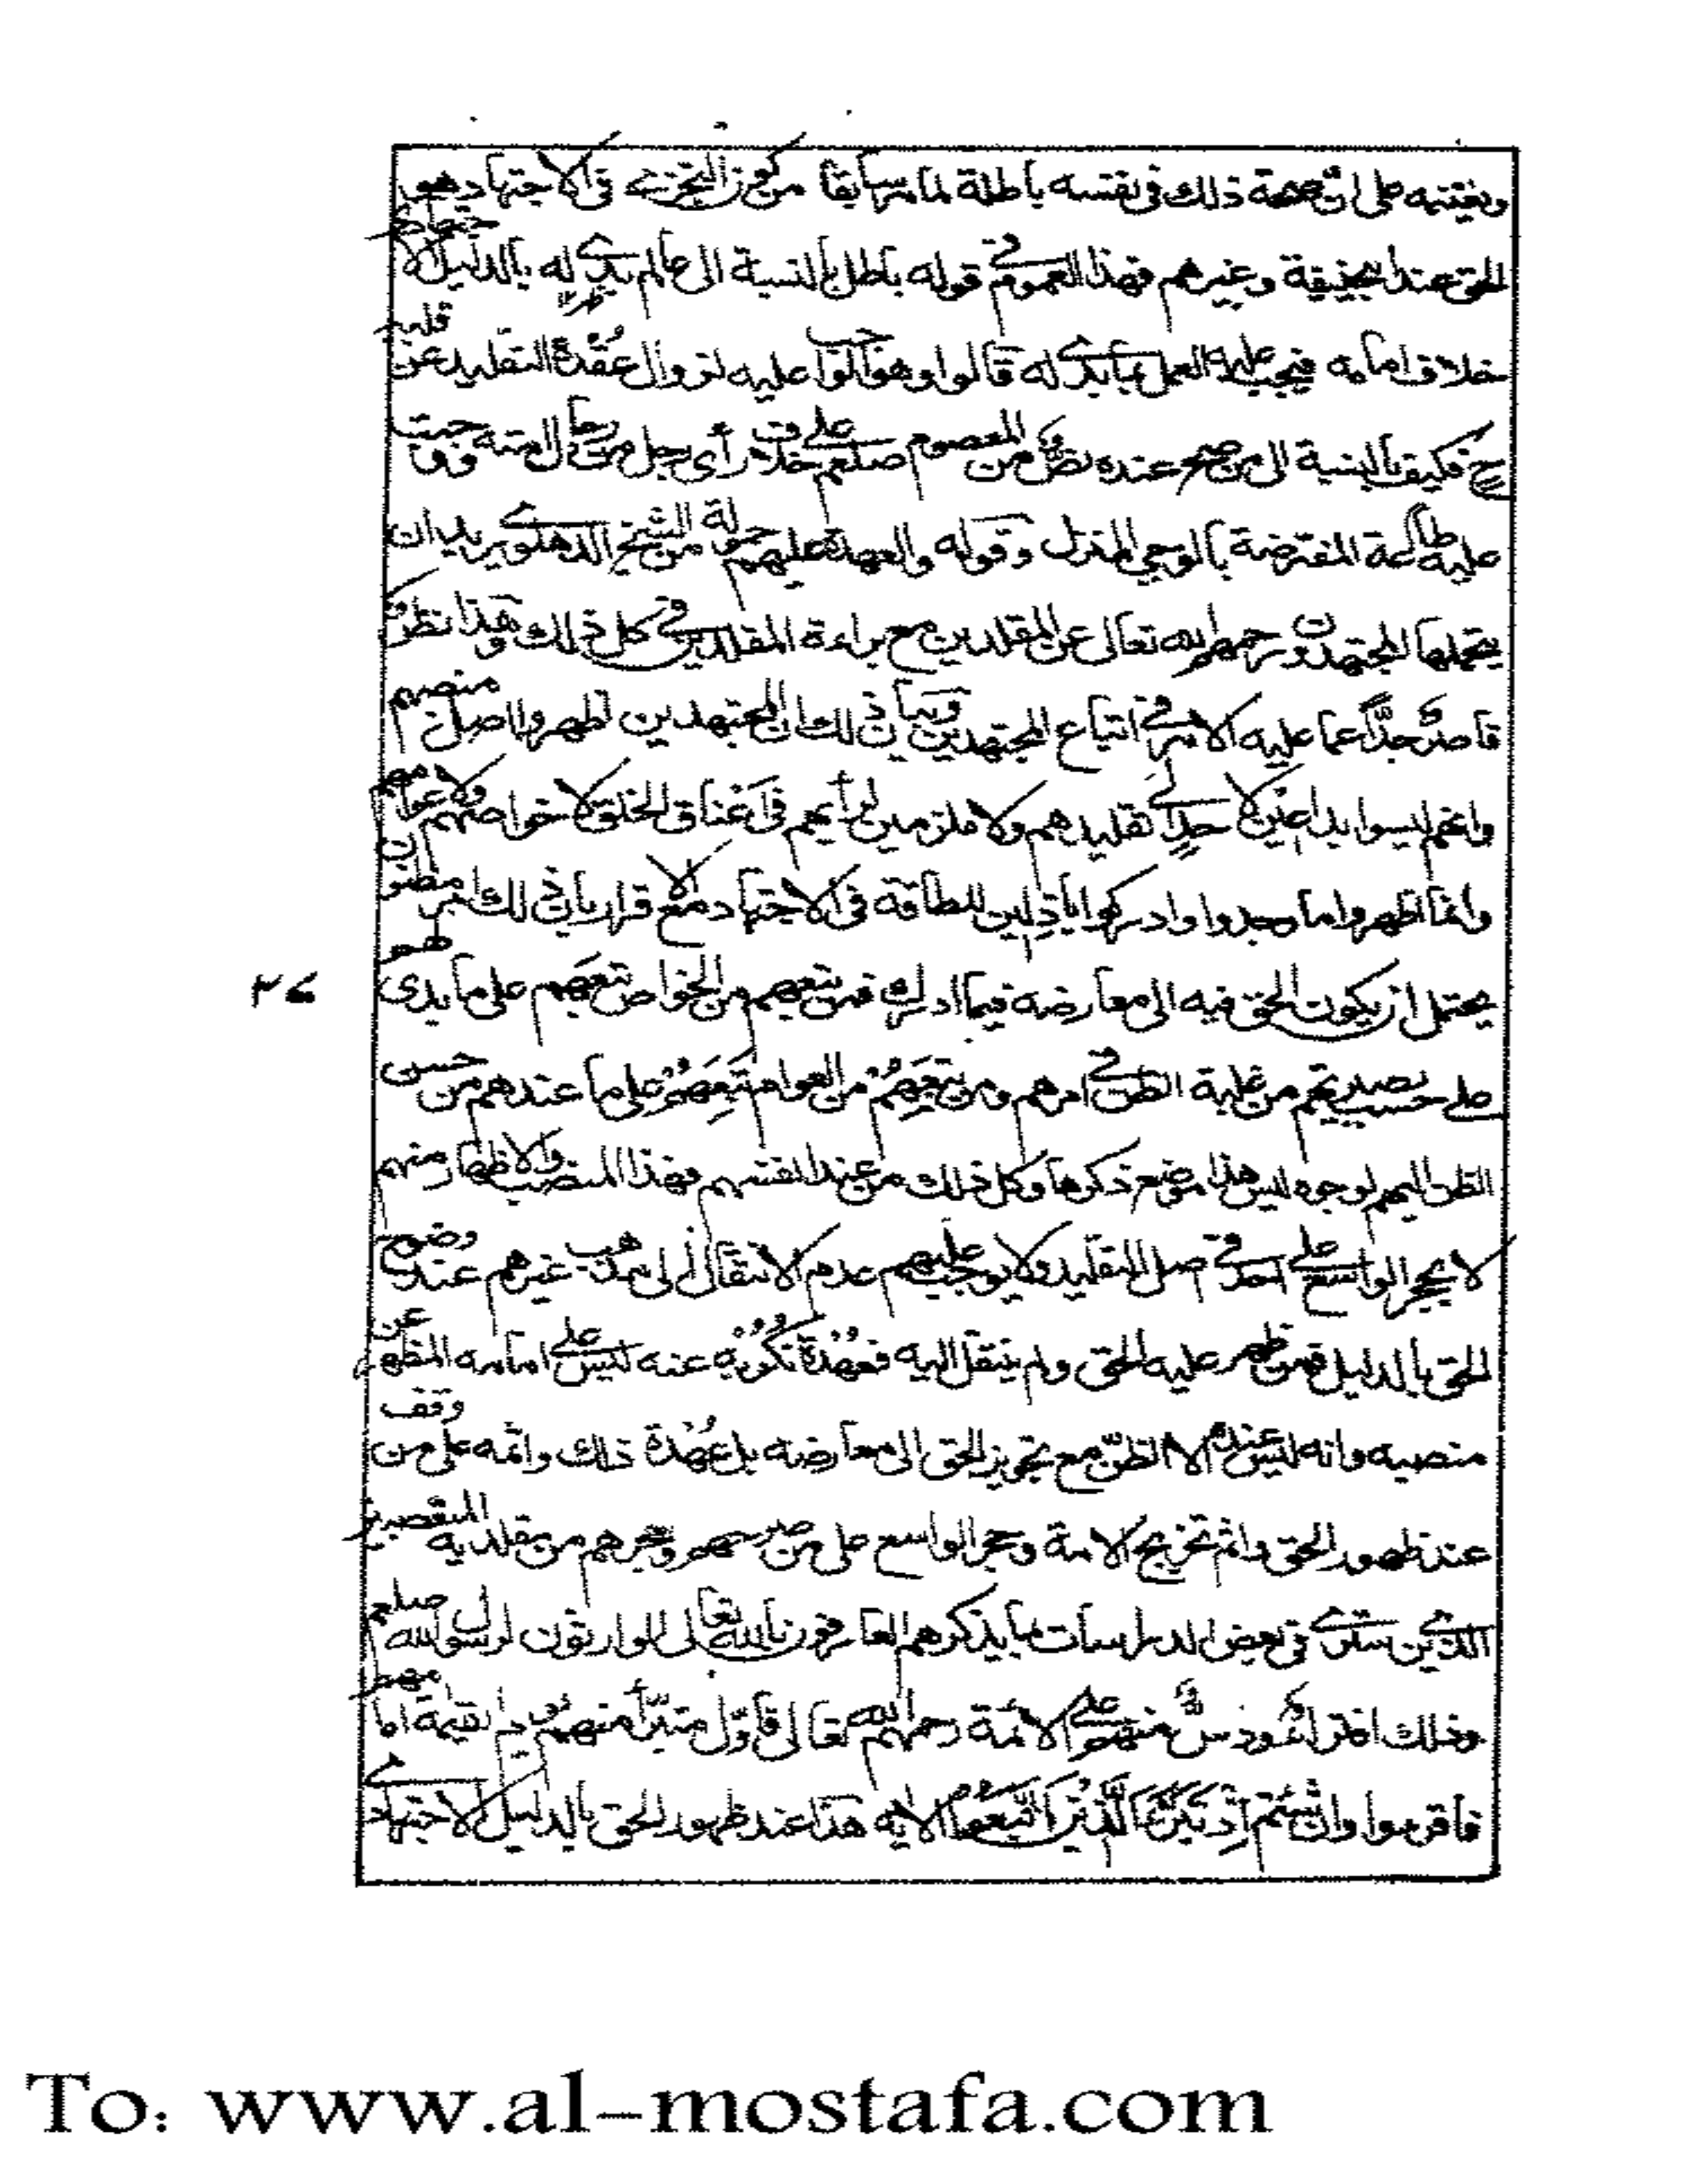 على ان صحة ذلك في نفسه باطلة لما مر سابقا من كون التجزي في الاجتهاد هو
الحق عند الحنفية وغيرهم فهذا العموم في قوله باطل بالنسبة الى عالم بدى له بالدليل الاجتهادي
خلاف امامه فيجب عليه العمل بما بدى له قالوا وهو الواجب عليه لزوال عقدة التقليد عن قلبه
ح فكيف بالنسبة الى من صح عنده نص من المعصوم صلعم على خلاف رأى رجل من رجال امته ووجبت
عليه طاعته المفترضة بالوحي المنزل وقوله والعهدة عليهم جولة من الشيخ الدهلوي يريد ان
يتحملها المجتهدون رحمهم الله تعالى عن المقلدين مع براءة المقلد في كل ذلك وهذا نظر
قاصر جدا عما عليه الامر في اتباع المجتهدين وبيان ذلك ان المجتهدين اظهروا اصل منصبهم
وانهم ليسوا بداعين لاحد الى تقليدهم ولا ملزمين لرأيهم في اعناق الخلق لا خواصهم ولا عوامهم
وانما اظهروا ما وجدوا وادركوا باذلين للطاقة في الاجتهاد مع الاقرار بان ذلك امر مظنون
يحتمل ان يكون الحق فيه الى معارضه فيما ادرك فمن تبعهم من الخواص تبعهم على ما بدى هو
على حسب تصديقهم من غلبة الظن في امرهم ومن تبعهم من العوام تبعهم على ما عندهم من حسن
الظن اليهم لوجوه ليس هذا موضع ذكرها وكل ذلك من عند انفسهم فهذا المنصب والاظهار منهم
لا يحجر الواسع على احد في اصل التقليد ولا يوجب عليهم عدم الانتقال الى مذهب غيرهم عند وضوح
الحق بالدليل فمن ظهر عليه الحق ولم ينتقل اليه فعهدة نكوبه عنه ليس على امامه المظهر عن
منصبه وانه ليس عنده الا الظن مع تجويز الحق الى معارضه بل عهدة ذلك واثمه على من وقف
عند ظهور الحق واثم تحريج الامة وحجر الواسع على من وغيرهم من مقلديه
الذين سترى في بعض الدراسات ما يذكرهم العارفون بالله تعالى الوارثون لرسول الله صلعم
وذلك افتراء ودس منهم على الائمة رحمهم الله تعالى فاول متبرأ منهم يوم القيمة امامهم
فاقرءوا وان شئتم اذ تبرأ الذين اتبعوا الاية هذا عند ظهور الحق بالدليل الاجتهادي
٣٧
To: www.al-mostafa.com